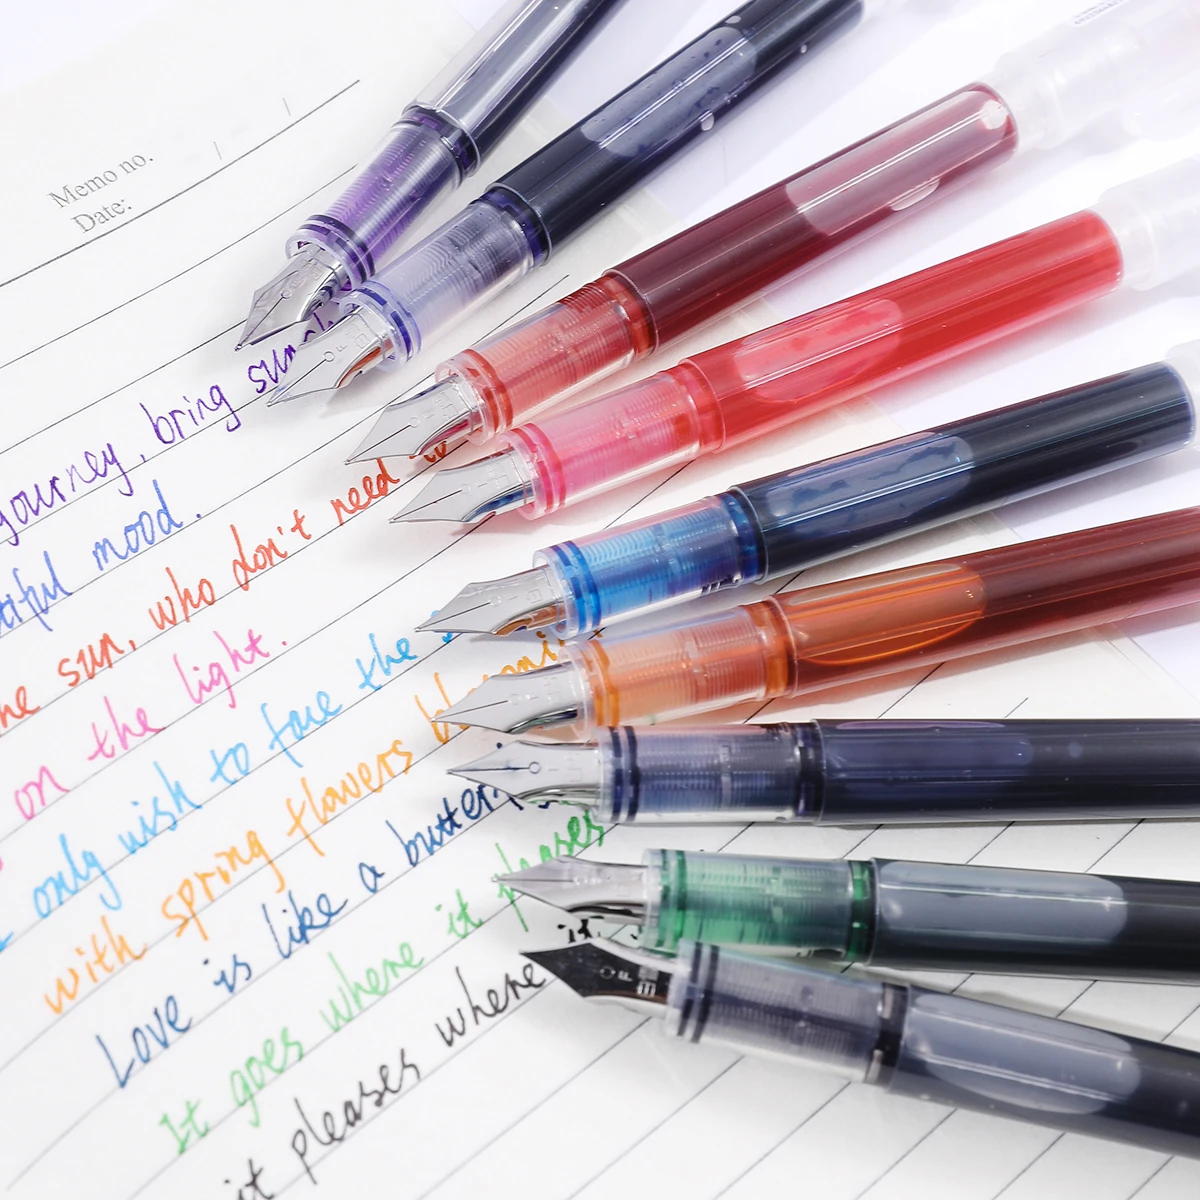 Memo no.
Date:
journey, bring
mood.
sun, who don't need
on the light.
only wish to face the
with spring flowers
Love is like a
It goes where it pleases
it pleases where